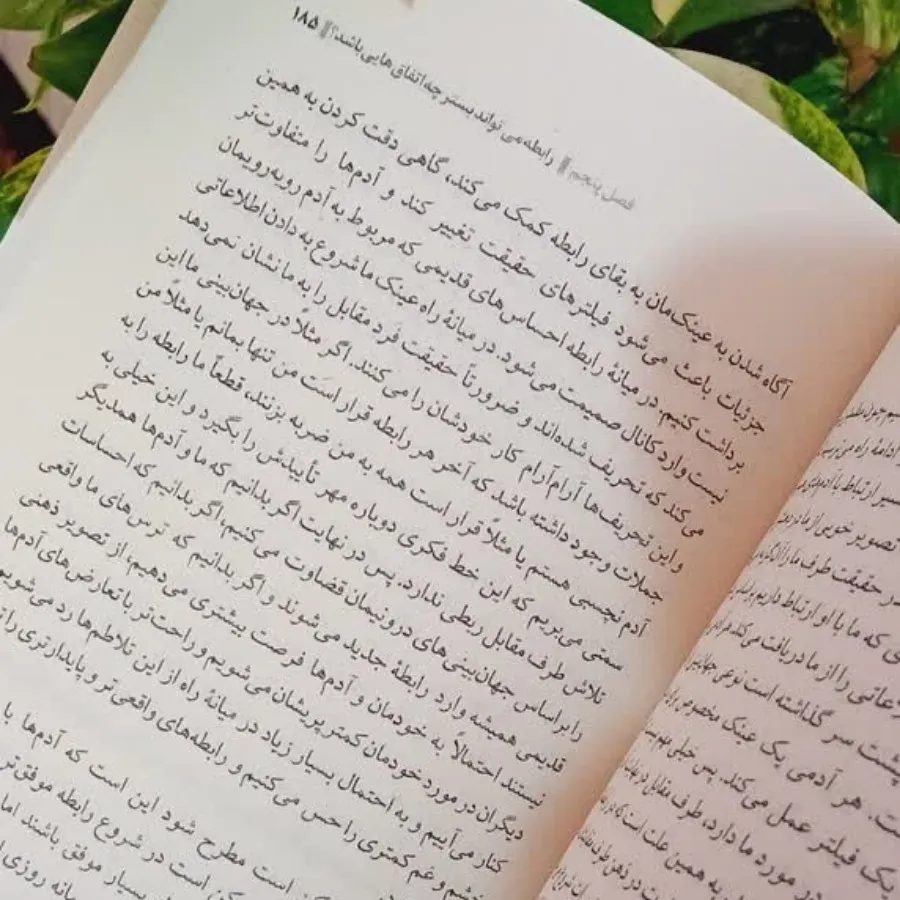 فصل پنجم || رابطه می‌تواند بستر چه اتفاق‌هایی باشد؟ || ۱۸۵
آگاه شدن به عینک‌مان به بقای رابطه کمک می‌کند، گاهی دقت کردن به همین
جزئیات باعث می‌شود فیلترهای حقیقت تغییر کند و آدم‌ها را متفاوت‌تر
برداشت کنیم. در میانهٔ رابطه احساس‌های قدیمی که مربوط به آدم روبه‌رویمان
نیست وارد کانال صمیمت می‌شود. در میانهٔ راه عینک ما شروع به دادن اطلاعاتی
می‌کند که تحریف شده‌اند و ضرورتاً حقیقت فرد مقابل را به ما نشان نمی‌دهد
و این تحریف‌ها آرام‌آرام کار خودشان را می‌کنند. اگر مثلاً در جهان‌بینی ما این
جملات وجود داشته باشد که آخر هر رابطه قرار است من تنها بمانم یا مثلاً من
آدم نچسبی هستم یا مثلاً قرار است همه به من ضربه بزنند، قطعاً ما رابطه را به
سمتی می‌بریم که این خط فکری دوباره مهر تأییدش را بگیرد و این خیلی به
تلاش طرف مقابل ربطی ندارد. پس در نهایت اگر بدانیم که ما و آدم‌ها همدیگر
را براساس جهان‌بینی‌های درونیمان قضاوت می‌کنیم، اگر بدانیم که احساسات
قدیمی همیشه وارد رابطهٔ جدید می‌شوند و اگر بدانیم که ترس‌های ما واقعی
نیستند احتمالاً به خودمان و آدم‌ها فرصت بیشتری می‌دهیم، از تصویر ذهنی
دیگران در مورد خودمان کمتر پریشان می‌شویم و راحت‌تر با تعارض‌های آدم‌ها
کنار می‌آییم و به احتمال بسیار زیاد در میانهٔ راه از این تلاطم‌ها رد می‌شویم
خشم و غم کمتری را حس می‌کنیم و رابطه‌های واقعی‌تر و پایدارتری را
است مطرح شود این است که آدم‌ها با
است در شروع رابطه موفق‌تر
بسیار موفق باشند اما
روزی
ادامهٔ راه می‌ترسیم
سیر ارتباط با آدم
تصویر خوبی از ما در
در حقیقت طرف ما را
ی که ما با او ارتباط داریم
را از ما دریافت می‌کند
پشت سر گذاشته است نوعی
هر آدمی یک عینک مخصوص
یک فیلتر عمل می‌کند. پس خیلی مهم
در مورد ما دارد، طرف مقابل در
به همین علت است که
در ذهن طرف